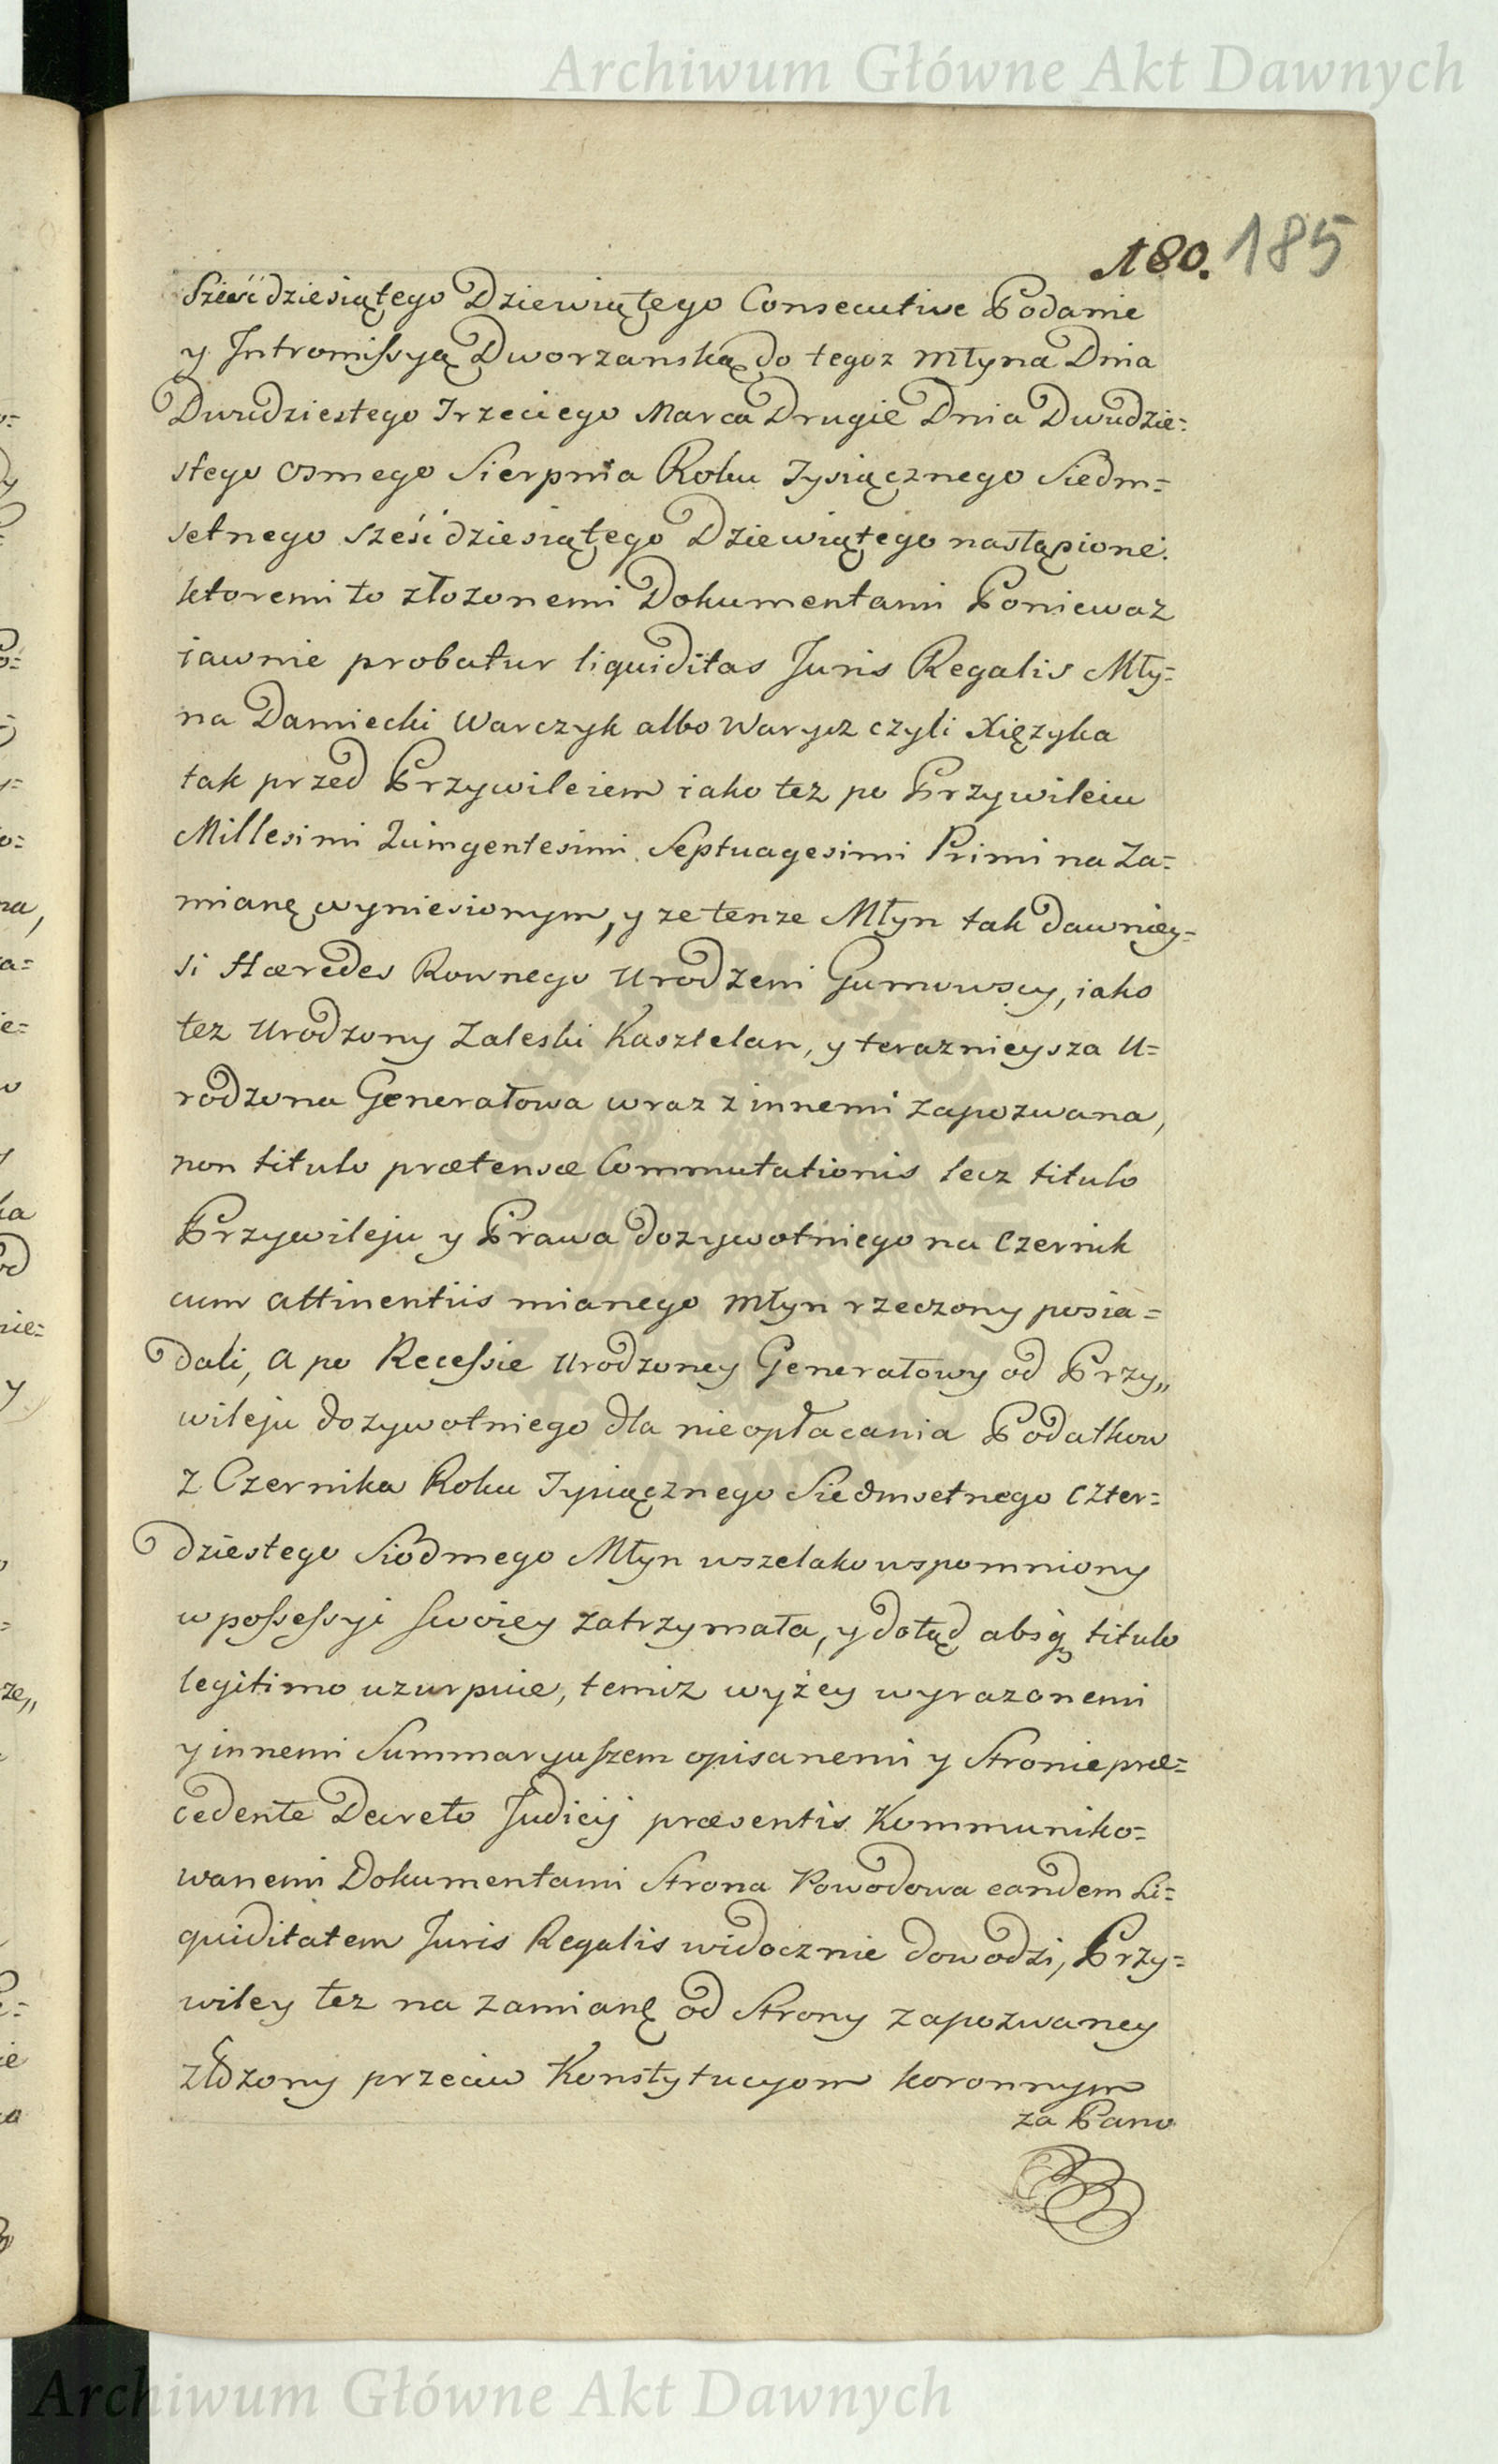 Archiwum Główne Akt Dawnych
180. 185
Sześćdziesiątego Dziewiątego Consecutive Podanie
y Intromissyą Dworzanską do tegoz Młyna Dnia
Dwudziestego Trzeciego Marca Drugie Dnia Dwudzie=
stego Osmego Sierpnia Roku Tysiącznego Siedm=
setnego sześćdziesiątego Dziewiątego nastąpione.
ktoremi to złozonemi Dokumentami Poniewaz
iawnie probatur liquiditas Juris Regalis Mły=
na Damiecki Warczyk albo Warysz czyli Xięzyka
tak przed Przywileiem iako tez po Przywileiu
Millesimi Quingentesimi Septuagesimi Primi na Za=
mianę wyniesionym, y ze tenze Młyn tak dawniey=
si Hæredes Rownego Urodzeni Gumowscy, iako
tez Urodzony Zaleski Kasztelan, y teraznieysza U=
rodzona Generałowa wraz z innemi zapozwana,
non titulo prætensæ Commutationis lecz titulo
Przywileju y Prawa dozywotniego na Czernik
cum attinentiis mianego Młyn rzeczony posia=
dali, a po Recessie Urodzoney Generałowy od Przy„
wileju dozywotniego dla nieopłacania Podatkow
z Czernika Roku Tysiącznego Siedmsetnego czter=
dziestego Siódmego Młyn wszelako wspomniony
w possessyi swoiey zatrzymała, y dotąd absq titulo
legitimo uzurpuie, temiz wyżey wyrazonemi
y innemi Summaryuszem opisanemi y Stronie præ=
cedente Decreto Judicij præsentis Kommuniko=
wanemi Dokumentami Strona Powodowa eandem Li=
quiditatem Juris Regalis widocznie dowodzi, Przy=
wiley tez na zamianę od Strony zapozwaney
złozony przeciw Konstytucyom koronnym
za Pano
Archiwum Główne Akt Dawnych